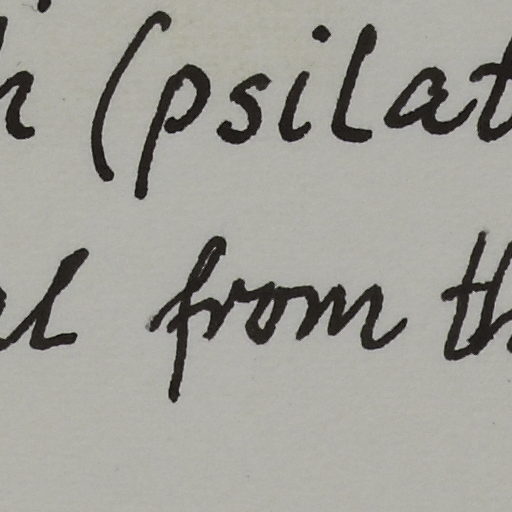 (psilat
from th